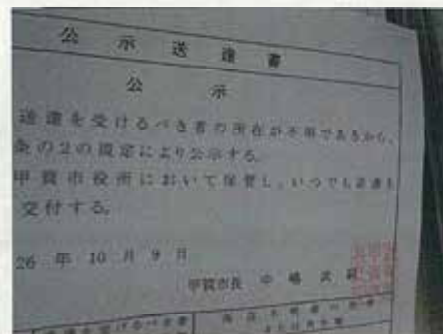 公示送達書
公示
送達を受けるべき者の所在が不明であるから、
条の2の規定により公示する。
甲賀市役所において保管し、いつでも送達書を
交付する。
26年10月9日
甲賀市長 中嶋武嗣
送達を受けるべき者